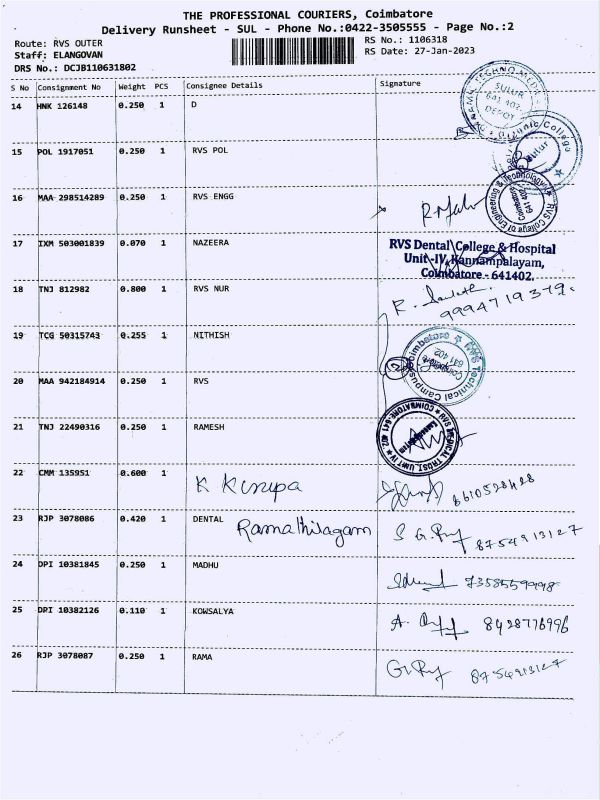 THE PROFESSIONAL COURIERS, Coimbatore
Delivery Runsheet - SUL - Phone No.:0422-3505555 - Page No.:2
Route: RVS OUTER
RS No.: 1106318
Staff: ELANGOVAN
RS Date: 27-Jan-2023
DRS No.: DCJB110631802
S No Consignment No Weight PCS Consignee Details Signature
14 HNK 126148 0.250 1 D
SULUR
641 402
DEPOT
15 POL 1917051 0.250 1 RVS POL
Sulur
16 MAA 298514289 0.250 1 RVS ENGG
RVS College of Engineering &
Coimbatore
641 402
17 IXM 503001839 0.070 1 NAZEERA
RVS Dental College & Hospital
Unit-IV, Kannampalayam,
Coimbatore - 641402.
18 TNJ 812982 0.800 1 RVS NUR
9994719379
19 TCG 50315743 0.255 1 NITHISH
RVS Technical Campus Coimbatore
Coimbatore
641 402
20 MAA 942184914 0.250 1 RVS
21 TNJ 22490316 0.250 1 RAMESH
RVS MEDICAL TRUST, UNIT IV COIMBATORE 641 402
22 CMM 135951 0.600 1 K Kirupa 8610528428
23 RJP 3078086 0.420 1 DENTAL Ramathilagam 8754913127
24 DPI 10381845 0.250 1 MADHU 7358559998
25 DPI 10382126 0.110 1 KOWSALYA 8428776996
26 RJP 3078087 0.250 1 RAMA 8754913127